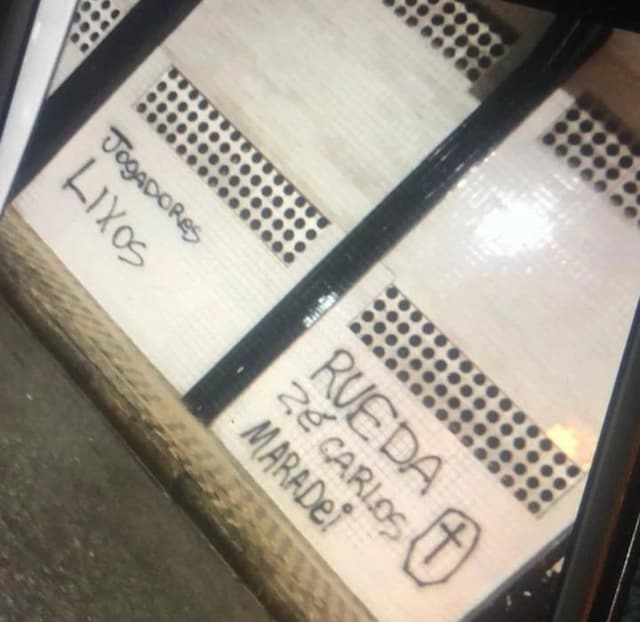 JOGADORES
LIXOS
RUEDA
Zé CARLOS
MARADEi